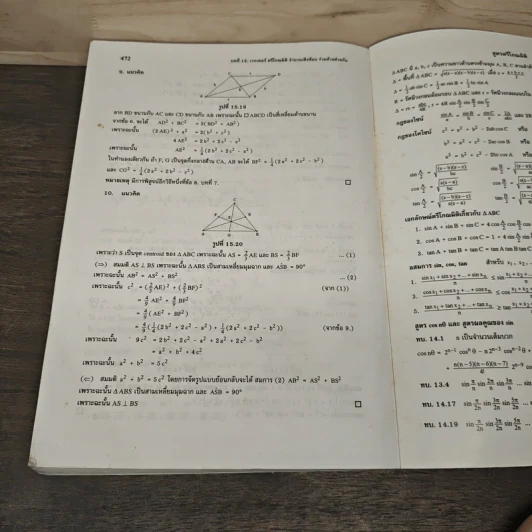 472
บทที่ 14: เวกเตอร์ ตรีโกณมิติ จำนวนเชิงซ้อน
9. แนวคิด
รูปที่ 15.19
ลาก BD ขนานกับ AC และ CD ขนานกับ AB เพราะฉะนั้น □ABCD เป็นสี่เหลี่ยมด้านขนาน
จากข้อ 6. จะได้ AD² + BC² = 2(BD² + AB²)
เพราะฉะนั้น (2AE)² + a² = 2(b² + c²)
4AE² = 2b² + 2c² − a²
เพราะฉะนั้น AE² = ¼(2b² + 2c² − a²)
ในทำนองเดียวกัน ถ้า F, G เป็นจุดกึ่งกลางด้าน CA, AB จะได้ BF² = ¼(2a² + 2c² − b²)
และ CG² = ¼(2a² + 2b² − c²)
หมายเหตุ มีการพิสูจน์อีกวิธีหนึ่งที่ข้อ 8. บทที่ 7. □
10. แนวคิด
รูปที่ 15.20
เพราะว่า S เป็นจุด centroid ของ △ABC เพราะฉะนั้น AS = ⅔AE และ BS = ⅔BF ... (1)
(⇒) สมมติ AS ⊥ BS เพราะฉะนั้น △ABS เป็นสามเหลี่ยมมุมฉาก และ AŜB = 90°
เพราะฉะนั้น AB² = AS² + BS² ... (2)
เพราะฉะนั้น c² = (⅔AE)² + (⅔BF)² (จาก (1))
= 4/9 AE² + 4/9 BF²
= 4/9 (AE² + BF²)
= 4/9 (¼(2b² + 2c² − a²) + ¼(2a² + 2c² − b²)) (จากข้อ 9.)
เพราะฉะนั้น 9c² = 2b² + 2c² − a² + 2a² + 2c² − b²
= a² + b² + 4c²
เพราะฉะนั้น a² + b² = 5c²
(⇐) สมมติ a² + b² = 5c² โดยการจัดรูปแบบย้อนกลับจะได้ สมการ (2) AB² = AS² + BS²
เพราะฉะนั้น △ABS เป็นสามเหลี่ยมมุมฉาก และ AŜB = 90°
เพราะฉะนั้น AS ⊥ BS □
สูตรตรีโกณมิติ
กฎของไซน์
กฎของโคไซน์ c² = a² + b² − 2ab cos C หรือ
b² = a² + c² − 2ac cos B หรือ
a² = b² + c² − 2bc cos A หรือ
เอกลักษณ์ตรีโกณมิติเกี่ยวกับ △ABC
1. sin A + sin B + sin C = 4 cos
2. cos A + cos B + cos C = 1 + 4 sin
3. tan A + tan B + tan C = tan A tan B tan C
อสมการ sin, cos, tan สำหรับ
สูตร cos nθ และ สูตรผลคูณของ sin
ทบ. 14.1 n เป็นจำนวนเต็มบวก
cos nθ = 2ⁿ⁻¹ cosⁿ θ − n 2ⁿ⁻³ cosⁿ⁻² θ +
ทบ. 13.4
ทบ. 14.17
ทบ. 14.19